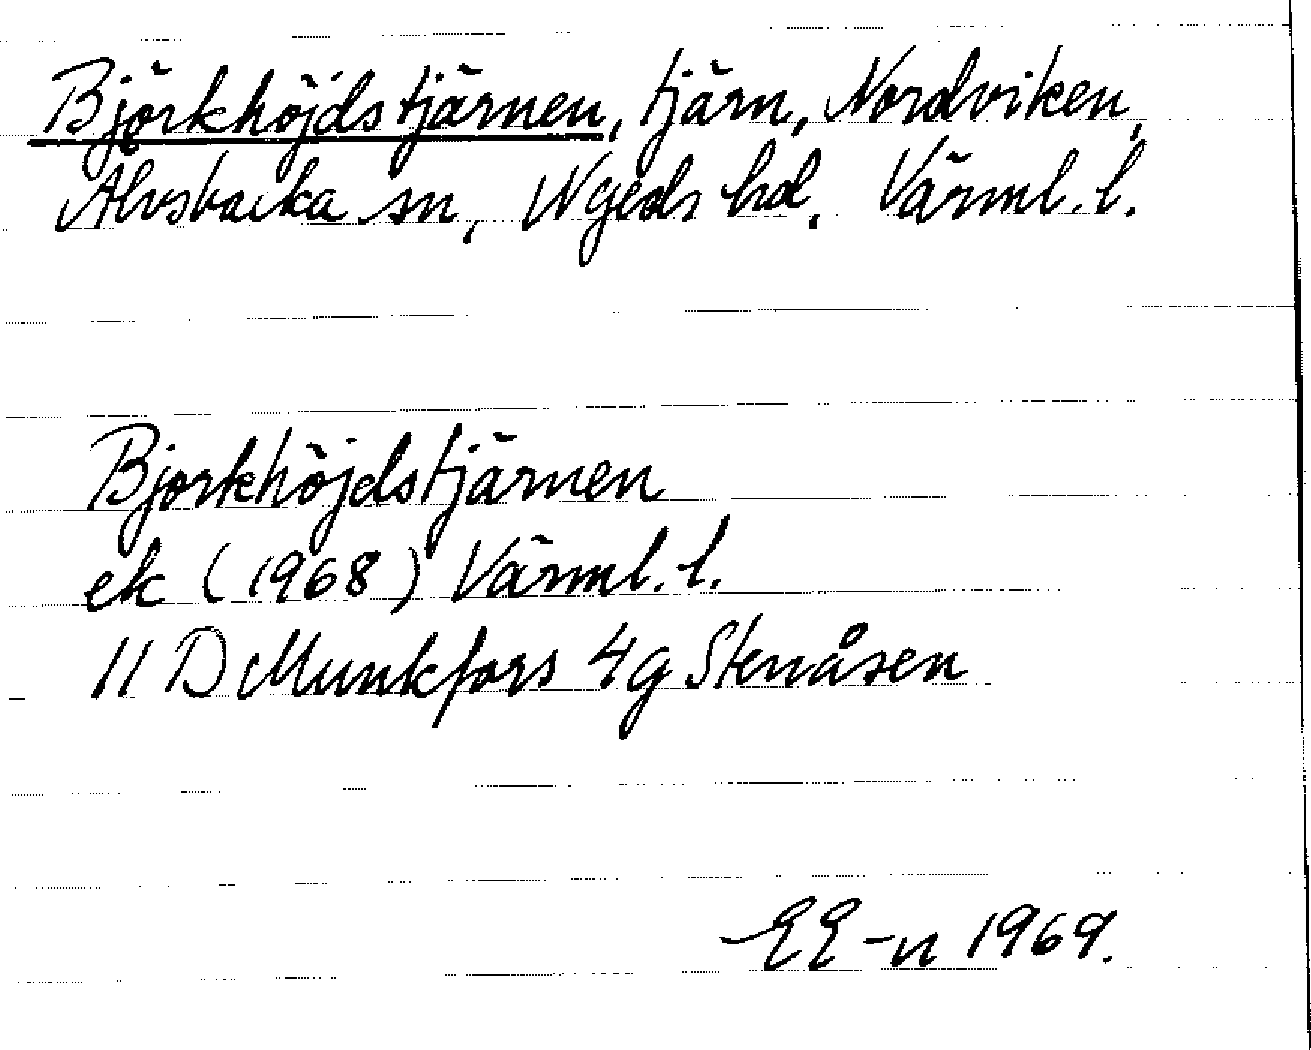 Björkhöjdstjärnen, tjärn, Nordviken,
Älvsbacka sn, Nyeds hd, Värml. l.
Bjorkhöjdstjärnen
ek (1968) Värml. l.
11 D Munkfors 4g Stenåsen
EE-n 1969.